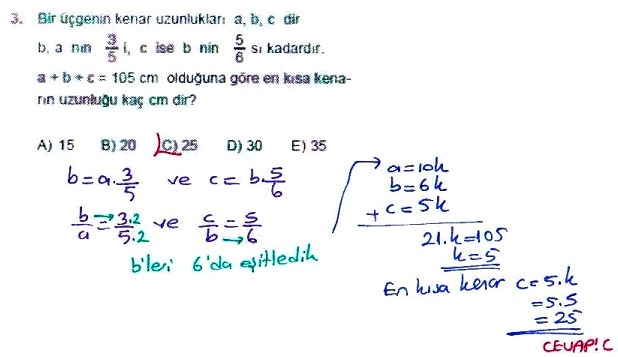 3. Bir üçgenin kenar uzunlukları a, b, c dir
b, a nın 3/5 i, c ise b nin 5/6 sı kadardır.
a + b + c = 105 cm olduğuna göre en kısa kena-
rın uzunluğu kaç cm dir?
A) 15 B) 20 C) 25 D) 30 E) 35
b = a·3/5 ve c = b·5/6
b/a = 3·2/5·2 ve c/b = 5/6
b'leri 6'da eşitledik
a=10k
b=6k
+ c=5k
21.k=105
k=5
En kısa kenar c=5.k
=5.5
=25
CEVAP! C